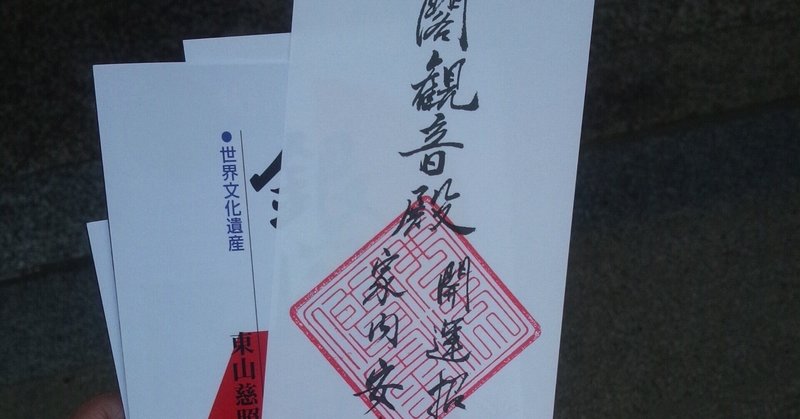 閣觀音殿
開運招
家内安
●世界文化遺産
東山慈照